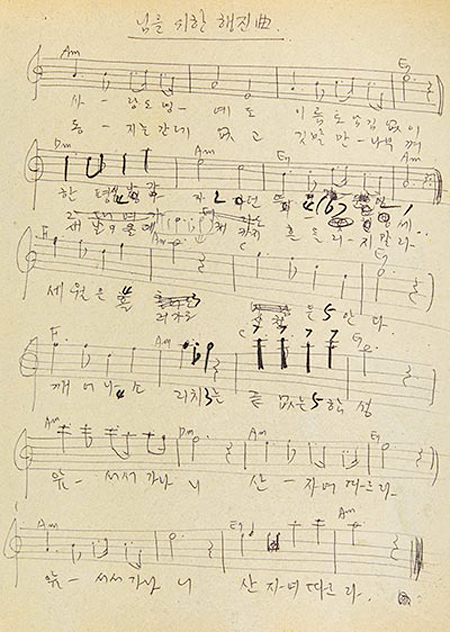 님을 위한 행진曲.
Am E7
사 - 랑도 명 - 예도 이름도 남김 없이
동 - 지는 간데 없고 깃발만 - 나부껴
Dm Am E7 Am
한 평
새 날 올 때 까지 흔들리 - 지 말라 -
F Am C E7
세월은 흘러가도 산천은 안다
F Am C E7
깨어나 소리치는 끝없는 함성
Am Dm Am E7
앞 - 서서 가나니 산 - 자여 따르라 -
Am E7 Am
앞 - 서서 가나니 산 자여 따르라.